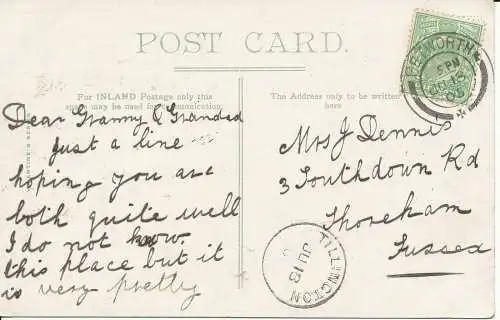 POST CARD.
For INLAND Postage only this
space may be used for communication
The Address only to be written
here
Dear Granny & Grandad
just a line
hoping you are
both quite well
I do not know
this place but it
is very pretty
Mrs J Dennis
3 Southdown Rd
Shoreham
Sussex
PETWORTH
5 PM
JU 18
TILLINGTON
JU 18